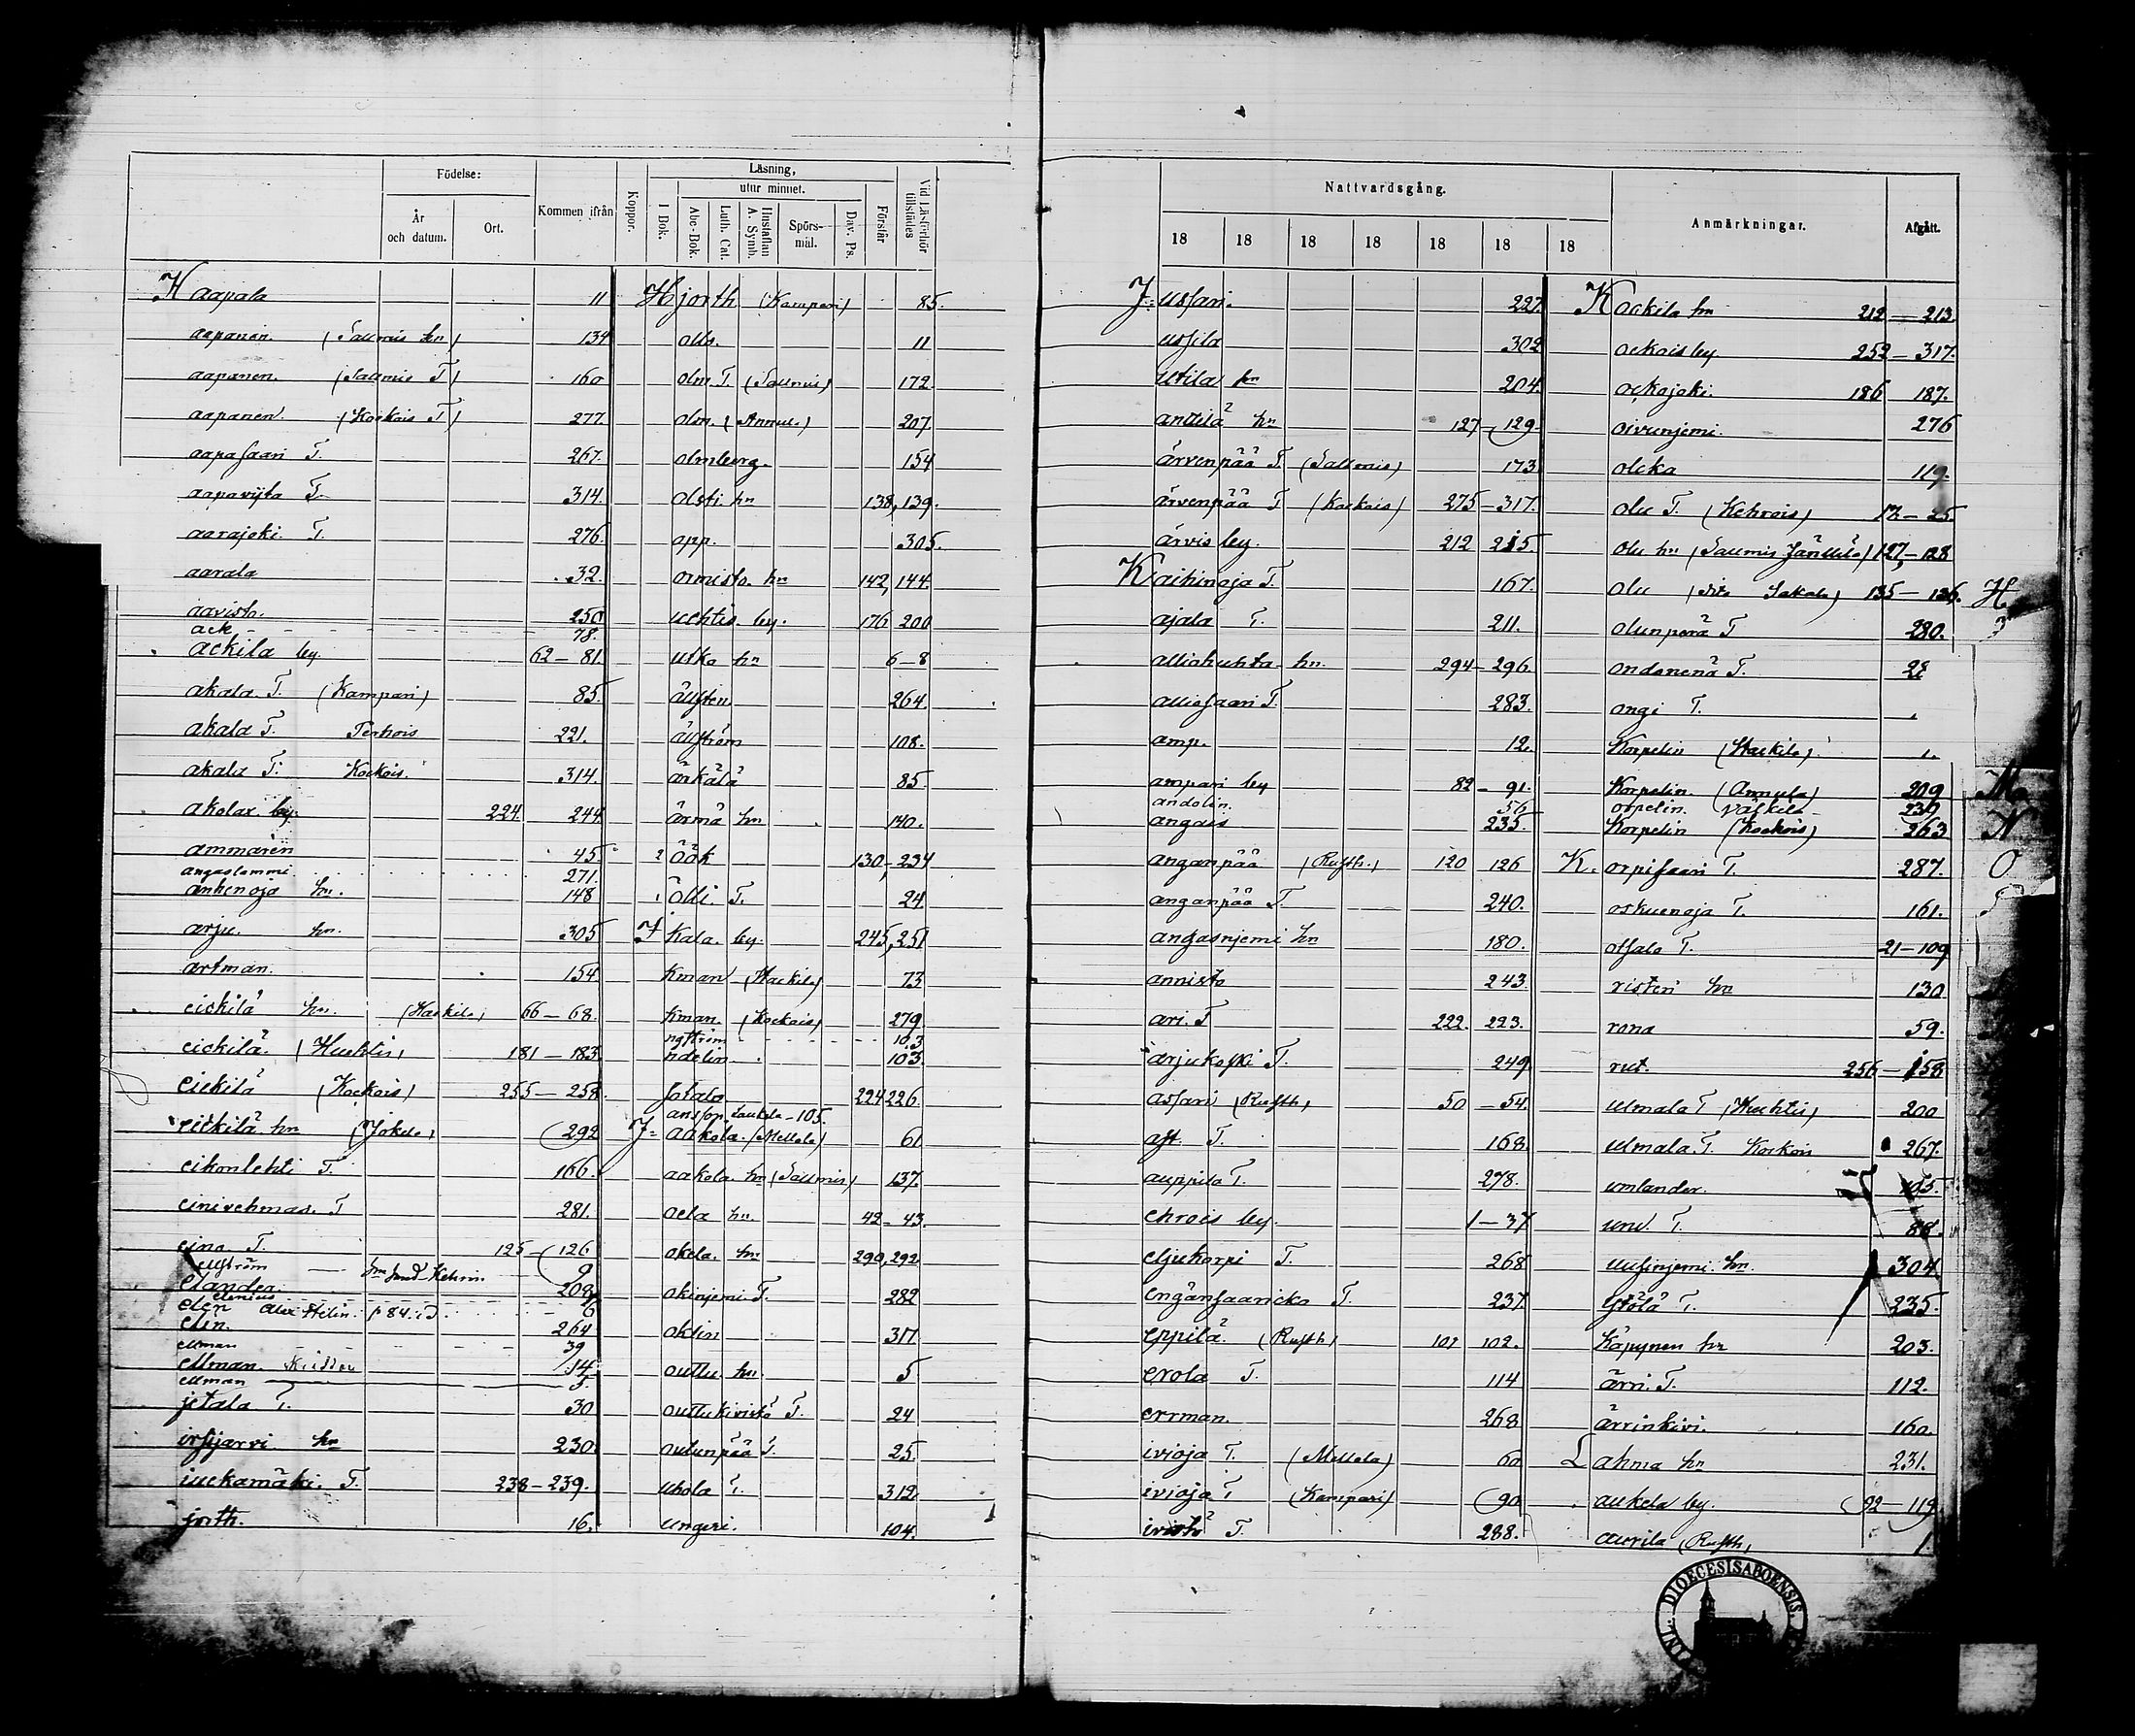 Födelse:
År och datum.
Ort.
Kommen ifrån
Koppor.
Läsning,
utur minnet.
I Bok.
Abc-Bok.
Luth. Cat.
Hustaflan A. Symb.
Spörs-mål.
Dav. Ps.
Förstår
Vid Läsförhör tillstädes
Haapala 11
aapanen. (Sallmis hn) 134
aapanen. (Sallmis T) 160
aapanen. (Kockois T) 277
aapasaari T. 267.
T. 314.
aarajoki. T. 276.
aarala 32.
aavisto. 250
ack 78.
ackila by 62-81.
akala. T. (Kampari) 85.
akala T. Perhois 221.
akala T. Kockois. 314.
akolax. by. 224. 244
ammarén 45
angaslammi 271.
ankenoja hn. 148
arju. hn. 305
artman. 154
eickilä hn. (Hackila) 66-68.
eickilä. (Huchtis) 181-183
eickilä (Kockois) 255-258.
eickilä hn (Jokela) 292
eikonlehti T. 166.
T 281.
eino. T. 125-126
9
elander. 208
elenius 9
elén 6
elin. 264
ellman 39
ellman. 14
ellman 5.
jetala T. 30
irsijarvi hn 230.
iuckamäki. T. 238-239.
jorth. 16.
Hjorth (Kampari) 85.
olls. 11
olm. T. (Sallmis) 172
olm. (Annula) 207
olmberg. 154
olsti. hn 138, 139.
opp. 305.
ormisto. hn 142, 144.
uchtis by. 176 200
utko hn 6-8
264.
108.
ärkälä 85
ärmä hn 140.
öök 130, 234
ölli. T. 24
Ikala. by. 245, 251
kman (Hackila) 73
kman. (Kockois) 279
ngström 103
ndelin 103.
sotalo 224 226.
ansson Laukela - 105.
J: aakola. (Mellola) 61
aakola. hn (Sallmis) 137.
oela hn. 42-43.
okela. hn 290, 292
okinjemi. T. 282
oklin 317
outtu. hn. 5
outtukivistö T. 24
outunpää T. 25.
uhola T. 312
ungeri. 104.
Nattvardsgång.
18 18 18 18 18 18 18
Anmärkningar.
Afgått.
J: ussari. 227.
ussila 302
utila hn 204.
anttila hn 127-129.
ärvenpää T. (Sallmis) 173
ärvenpää T (Kockois) 275-317.
ärvis by. 212 215.
Kaihinoja T. 167.
ajala T. 211.
alliohuhta hn. 294-296
alliosaari T. 283.
amp. 12.
ampari by 82-91.
andolin. 56
angais 235.
anganpää (Rusth.) 120 126
anganpää T. 240.
angasnjemi hn 180.
annisto 243.
ari. T 222. 223.
arjukoski T. 249
assari (Rusth) 50-54.
ast. T. 168.
auppila T. 278.
ehrois by. 1-37
eljukorpi T. 268
engänsaaricko T. 237.
eppilä. (Rusth) 101 102.
erola T. 114
errman. 268
ivioja T. (Mellola) 60
ivioja. T (Kampari) 90
ivistö T. 288.
Kockila hn 212-213.
ockois by 252-317.
ockojoki. 186 187.
oivunjemi. 276
olcka 119.
olu T. (Kehrois) 12-25.
olu hn (Sallmis Jänttilä) 127-128
olu 135-136.
olunperä T 280.
T. 28
ongi T.
Korpelin (Hackila)
Korpelin. (Annula) 209
orpelin. 230
Korpelin (Kockois) 263
K. orpisaari T. 287.
oskuenoja T. 161.
ossala T. 21-109
risteri hn 130
rona 59.
rut. 256-258
ulmala T (Huchtis) 200
ulmala. T. Kockois 267.
umlander. 105.
und T. 88.
uusinjemi. hn. 304
T. 235.
Käpynen hn 203.
ärri. T. 112.
ärrinkivi. 160.
Lahma hn 231.
aukela by. 92-119
aurila (Rusth) 1.
H
M
N
O
DIOECESIS ABOENSIS